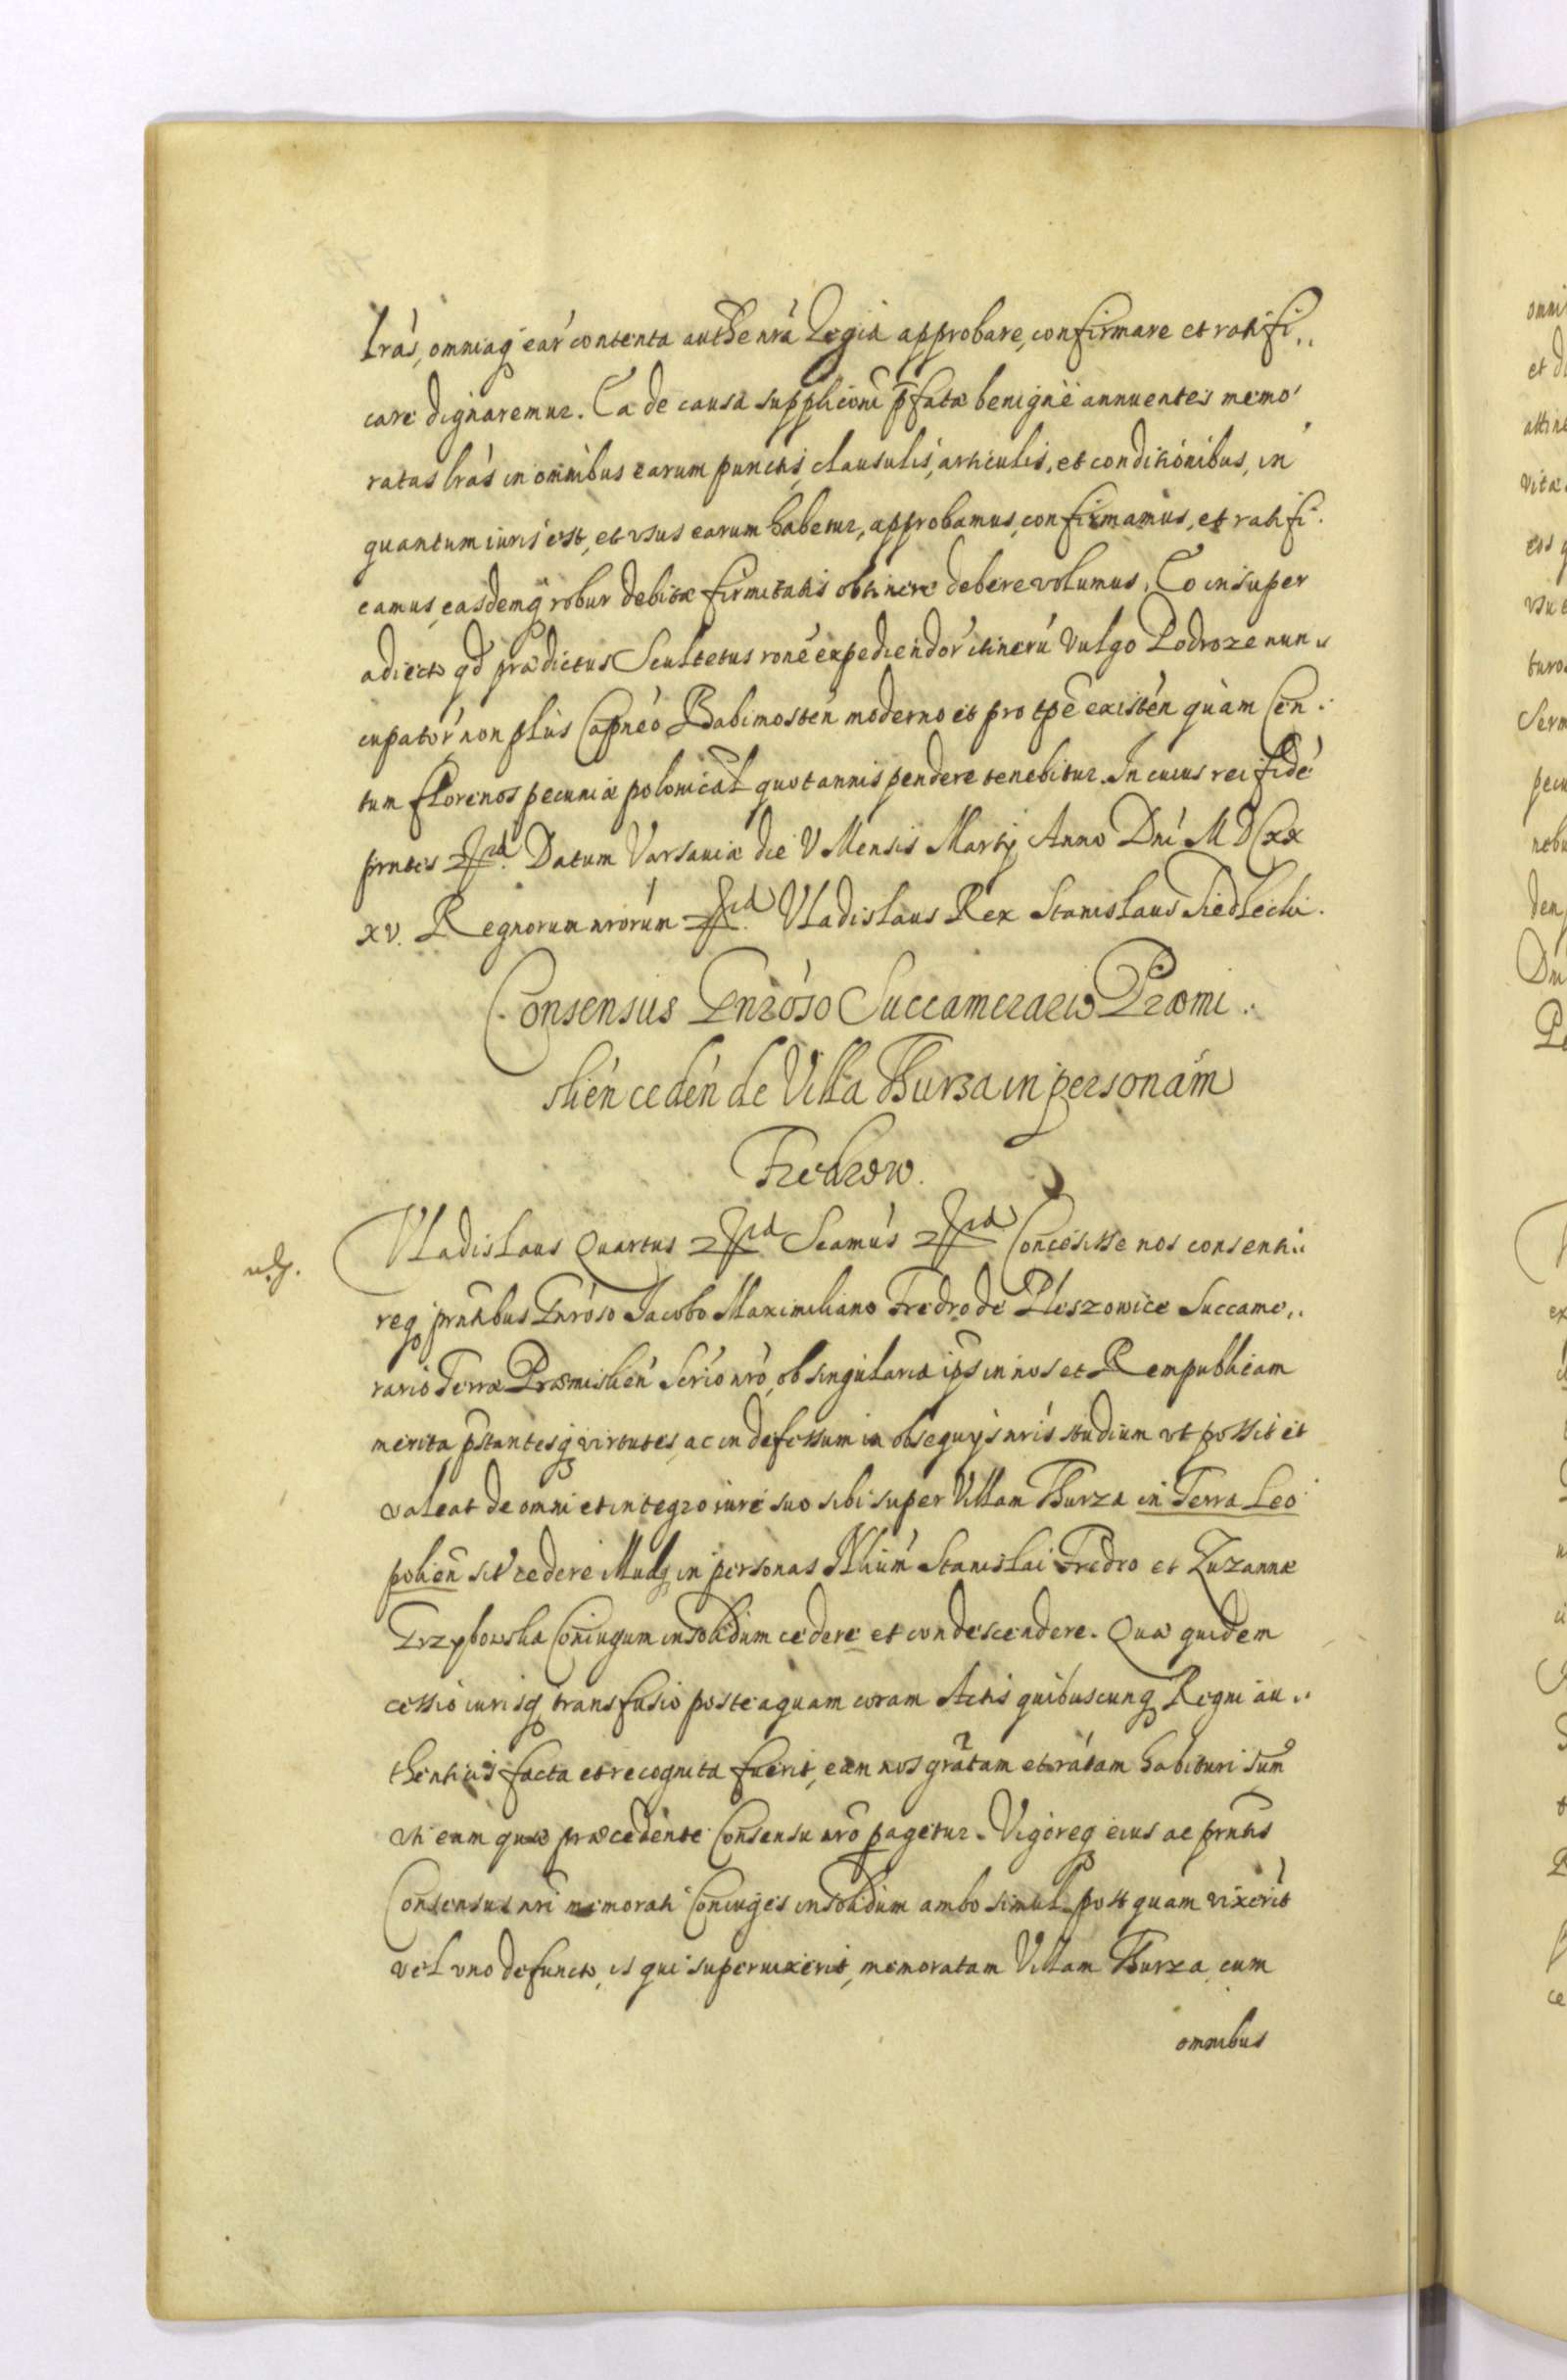 lrás, omniaq eaŕ contenta authe nrá Regiá approbare, confirmare et ratifi„
care dignaremur. Ea de causá supplicóni p̄fatæ benignè annuentes memo
ratas lrás in omnibus earum punctis, clausulis, articulis, et conditiónibus, in
quantum iuris est, et vsus earum habetur, approbamus, confirmamus, et ratifi
camus, easdemq robur debitæ firmitatis obtinere debere volumus. Eo insuper
adiecto qd prædictus Scultetus roné expediendoŕ itinerú vulgo Podroze nun„
cupatoŕ non plus Capnéo Babimosteń moderno et pro tpe existeń quàm Cen
tum florenos pecuniæ polonical quotannis pendere tenebitur. In cuius rei fidé
prntes Datum Varsauiæ die V Mensis Martij Anno Dni MDCXX
XV. Regnorum nrórum Vladislaus Rex Stanislaus Siedlecki.
Consensus Gnróso Succamerario Præmi
slień cedeń de Villa Thurza in personám
Fredrow.
Vladislaus Quartus Seamús Concesisse nos consentii„
req prntibus Gnróso Jacobo Maximiliano Fredro de Pleszowice Succame„
rario Terræ Præmislień Scrio nró, ob singularia ips in nos et Rempublicam
merita pstantesq virtutes, ac indefessum in obsequijs nrís studium vt possit et
valeat de omni et integro iure suo sibi super Villam Thurza in Terra Leo
polień sit cedere illudq in personas Nlium Stanislai Fredro et Zuzannæ
Grzybowska Coniugum insolidum cedere et condescendere. Quæ quidem
cessio iurisq transfusio posteaquam coram Actis quibuscunq Regni au„
thenticis facta et recognita fuerit, eam nos grátam et rátam habituri sum
vti eam quæ præcedente Consensu nró pagetur. Vigoreq eius ac prntis
Consensus nri memorati Coniuges insolidum ambo simul post quám vixerit
vel vno defuncto, is qui superuixerit, memoratam Villam Thurza cum
omnibus